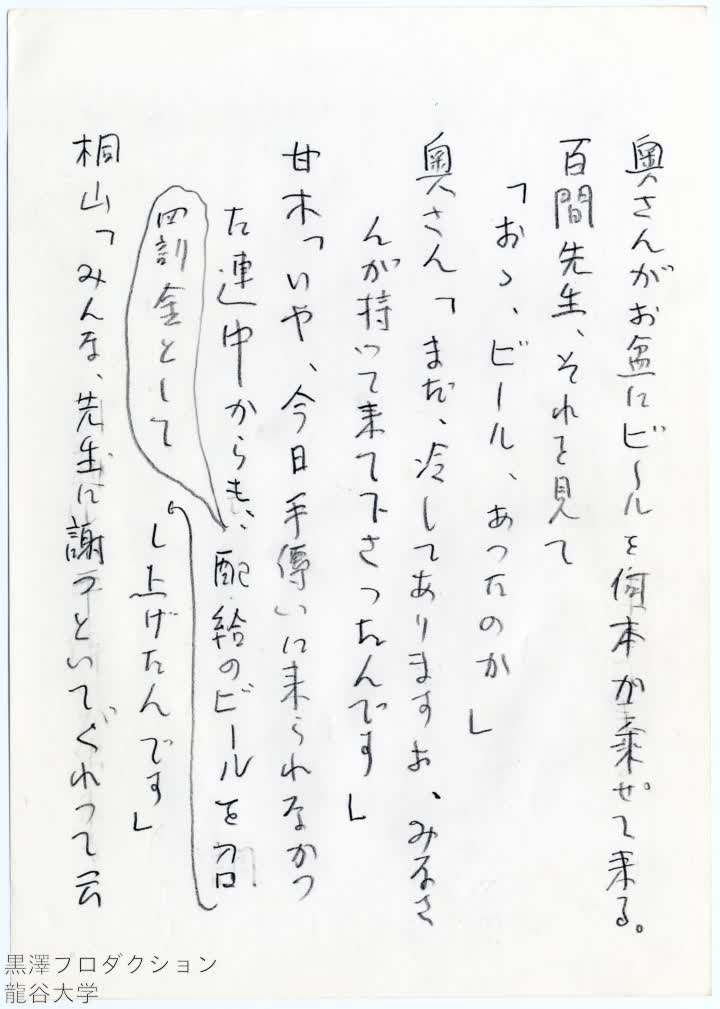 奥さんがお盆にビールを何本か乗せて来る。
百間先生、それを見て
「おゝ、ビール、あったのか」
奥さん「まだ、冷してありますよ、みなさ
んが持って来て下さったんです」
甘木「いや、今日手傳いに来られなかっ
た連中からも、配給のビールを召
四割金として
し上げたんです」
桐山「みんな、先生に謝っといてくれって云
黒澤プロダクション
龍谷大学